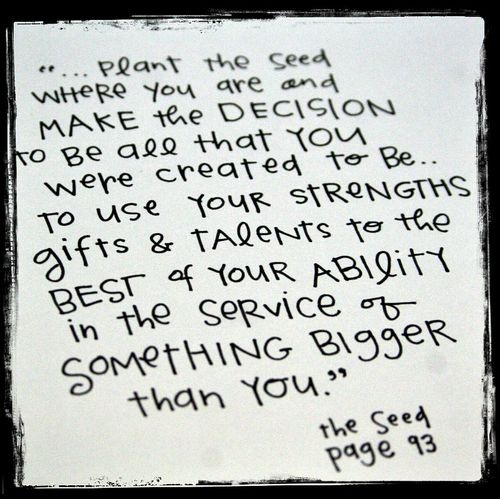 "... Plant the Seed
WHeRe You are and
MAKE the DECISION
to Be all that You
were created to Be..
To use YOUR STReNGTHS
gifts & TALeNTS to the
BEST of YOUR ABILITY
in the SeRVice of
SOMetHING BIggeR
than You."
the Seed
page 93